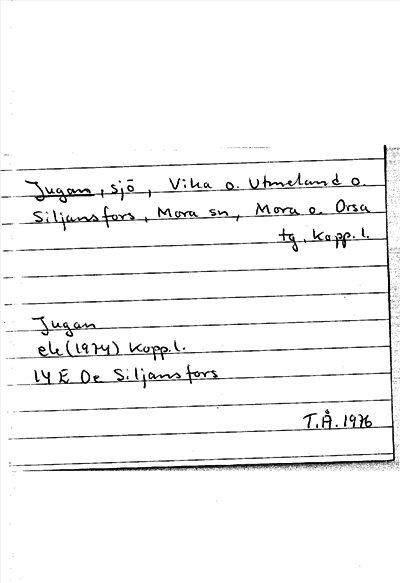 Jugan, sjö, Vika o. Utmeland o.
Siljansfors, Mora sn, Mora o. Orsa
tg, Kopp.l.
Jugan
ek (1974) Kopp.l.
14 E De Siljansfors
T.Å. 1976